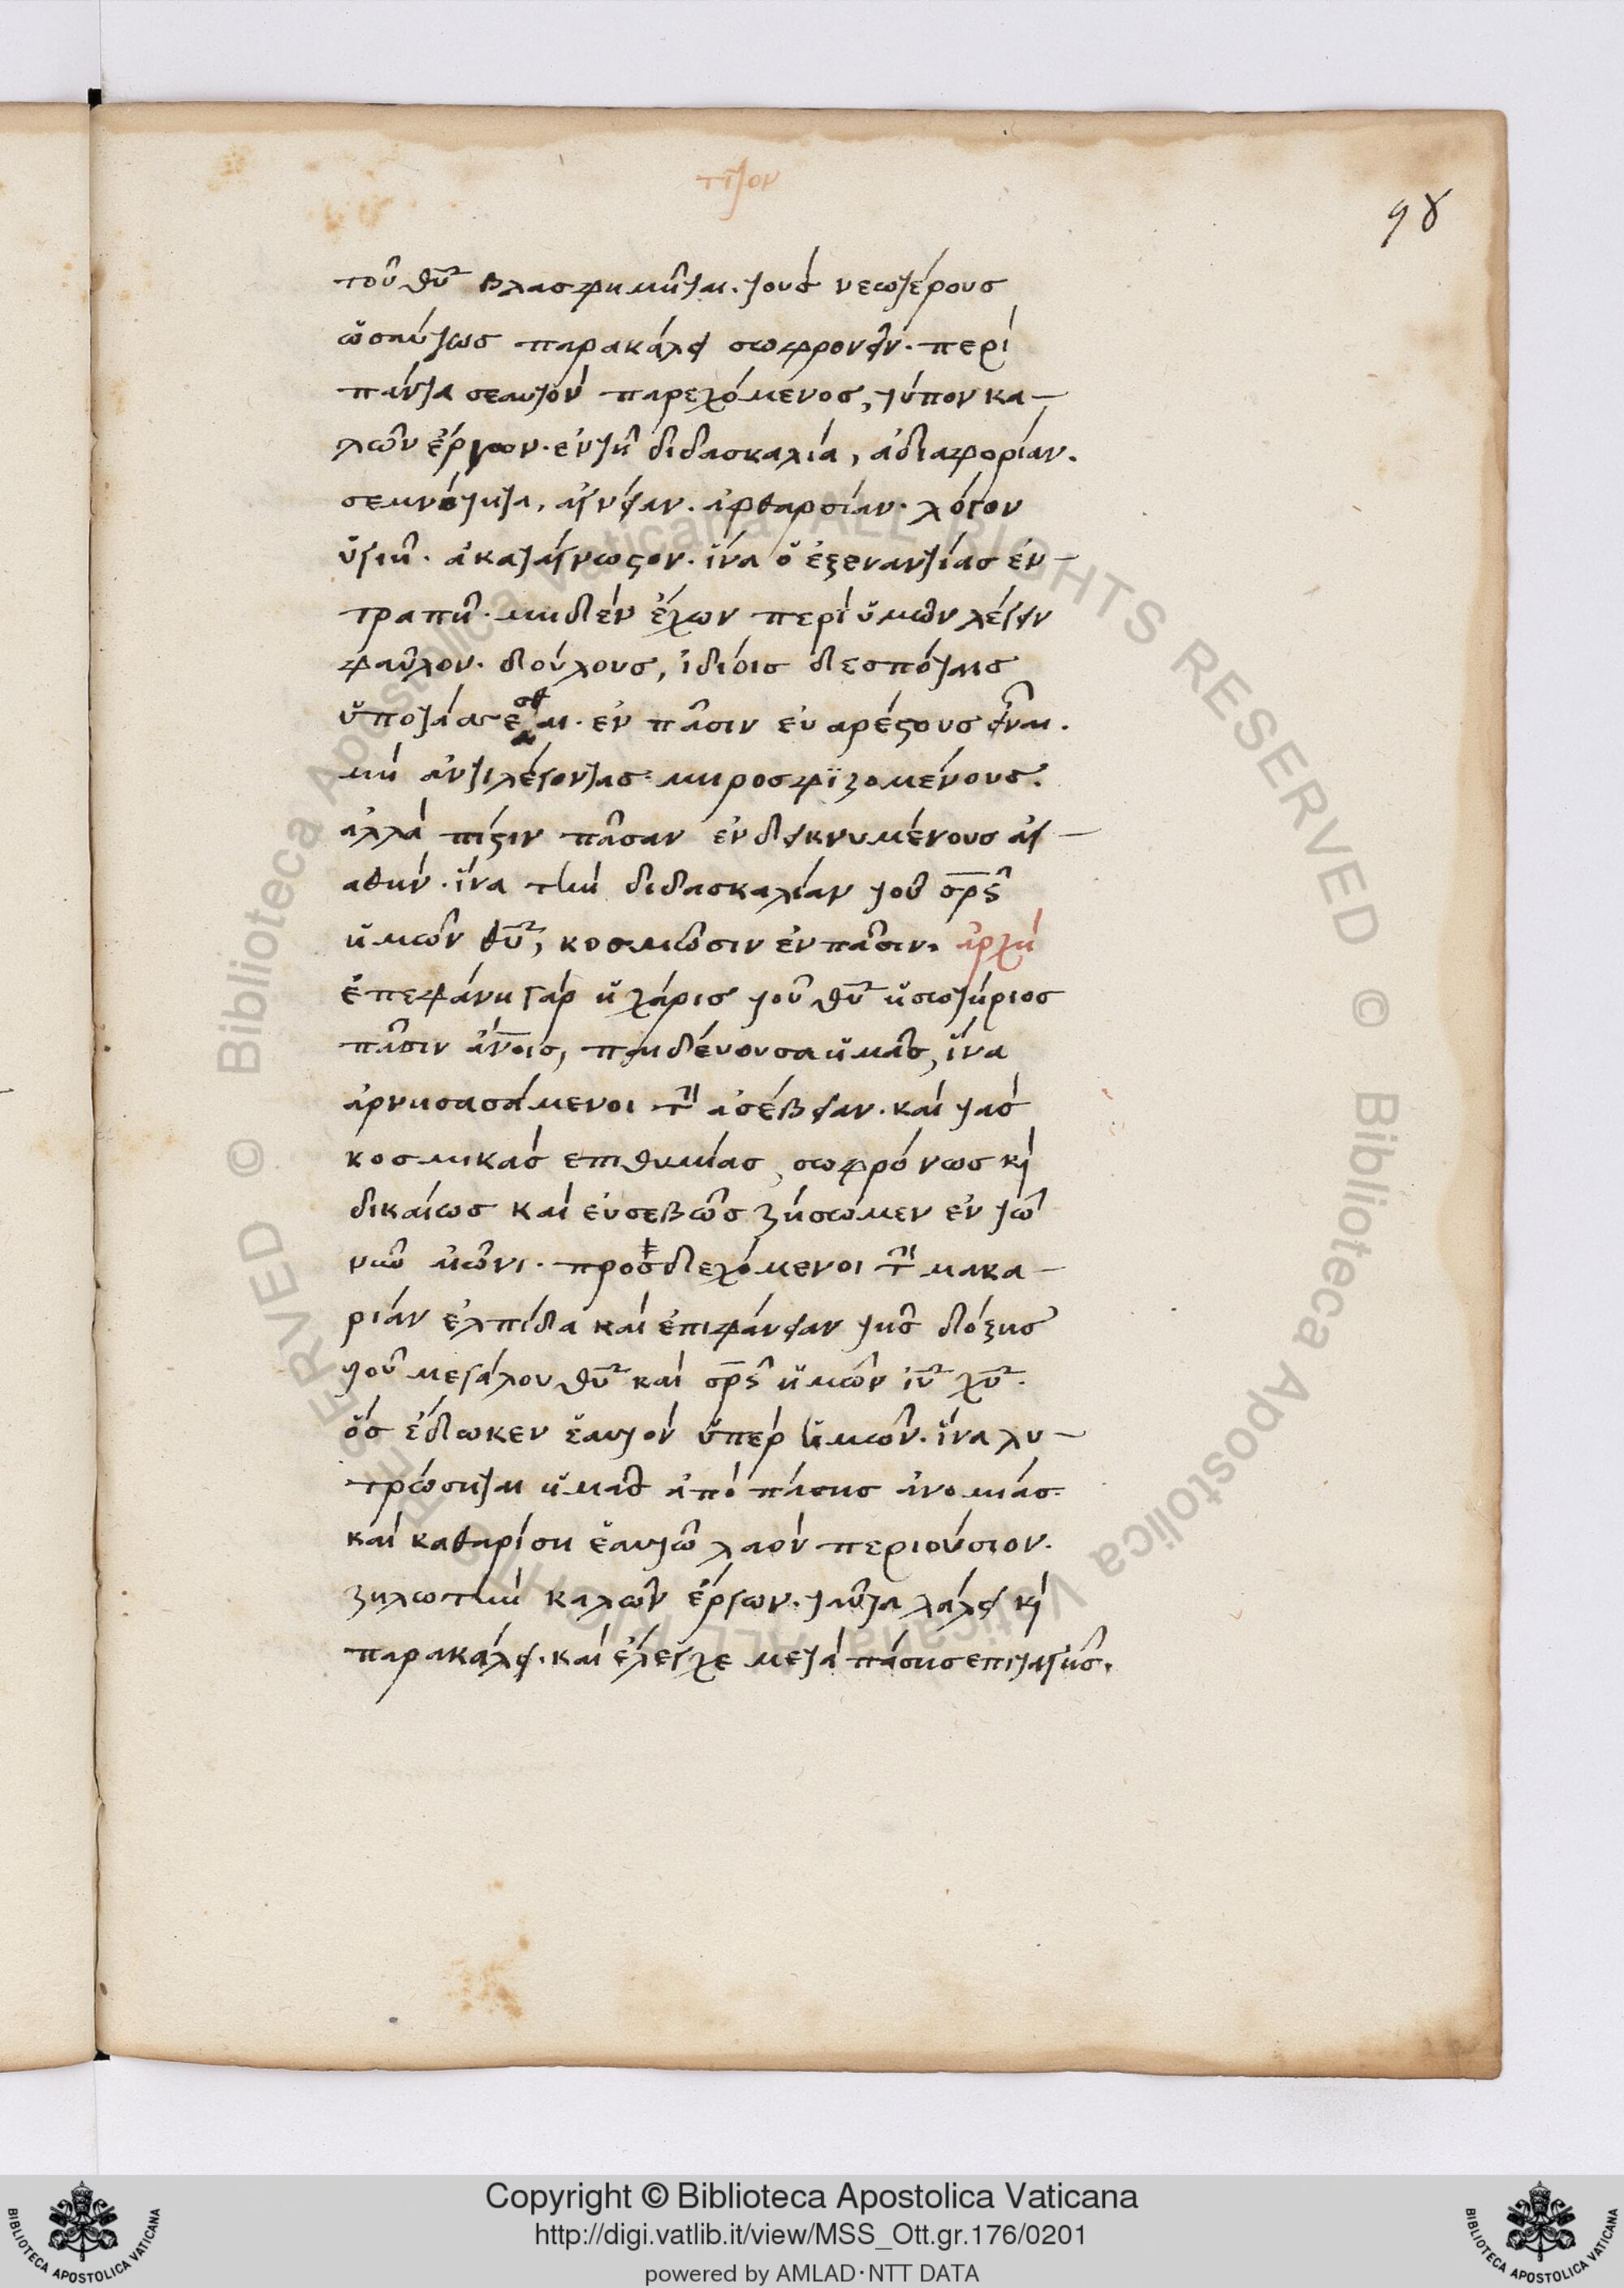 τίτον
98
τοῦ θῦ βλασφημῆται· τοὺς νεωτέρους
ὡσαύτως παρακάλει σωφρονεῖν· περὶ
πάντα σεαυτὸν παρεχόμενος, τύπον κα-
λῶν ἔργων· ἐν τῆ διδασκαλία, ἀδιαφορίαν.
σεμνότητα, ἁγνείαν. ἀφθαρσίαν· λόγον
ὑγιῆ· ἀκατάγνωστον· ἵνα ὁ ἐξεναντίας ἐν-
τραπῆ· μηδὲν ἔχων περὶ ὑμῶν λέγειν
φαῦλον· δούλους, ἰδίοις δεσπόταις
ὑποτάσσεσθαι· ἐν πᾶσιν εὐαρέστους εἶναι.
μὴ ἀντιλέγοντας· μηροσφϊζομένους.
ἀλλὰ πίστιν πᾶσαν ἐνδεικνυμένους ἀγ-
αθήν· ἵνα τὴν διδασκαλίαν τοῦ σρς
ἡμῶν θῦ, κοσμῶσιν ἐν πᾶσιν. ἀρχὴ
ἐπεφάνη γὰρ ἡ χάρις τοῦ θῦ ἡ σωτήριος
πᾶσιν ἀνοις, παιδεύουσα ἡμᾶς, ἵνα
ἀρνησασάμενοι τὴν ἀσέβειαν· καὶ τὰς
κοσμικὰς επιθυμίας, σωφρόνως κὶ
δικαίως καὶ εὐσεβῶς ζήσωμεν ἐν τῶ
νῦν αἰῶνι· προσδεχόμενοι τὴν μακα-
ριάν ἐλπίδα καὶ ἐπιφάνειαν τῆς δόξης
τοῦ μεγάλου θῦ καὶ σρς ἡμῶν ἰῦ χῦ·
ὃς ἔδωκεν ἑαυτὸν ὑπὲρ ἡμῶν· ἵνα λυ-
τρώσηται ἡμᾶς ἀπὸ πάσης ἀνομίας
καὶ καθαρίση ἑαυτῶ λαὸν περιούσιον·
ζηλωτὴν καλῶν ἔργων· ταῦτα λάλει κὶ
παρακάλει· καὶ ἔλεγχε μετὰ πάσης επιταγῆς.
Copyright © Biblioteca Apostolica Vaticana
http://digi.vatlib.it/view/MSS_Ott.gr.176/0201
powered by AMLAD·NTT DATA